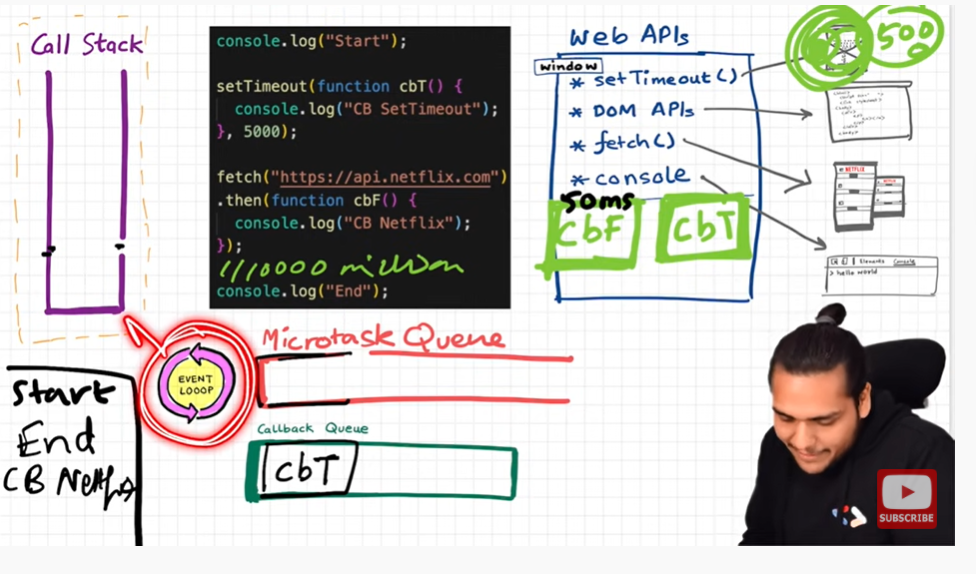 Call Stack
console.log("Start");
setTimeout(function cbT() {
console.log("CB SetTimeout");
}, 5000);
fetch("https://api.netflix.com")
.then(function cbF() {
console.log("CB Netflix");
});
console.log("End");
Web APIs
window
* setTimeout()
* DOM APIs
* fetch()
* console
50ms
CbF
CbT
500
NETFLIX
Elements Console
> hello world
EVENT
LOOOP
Microtask Queue
Callback Queue
cbT
Start
End
CB
SUBSCRIBE